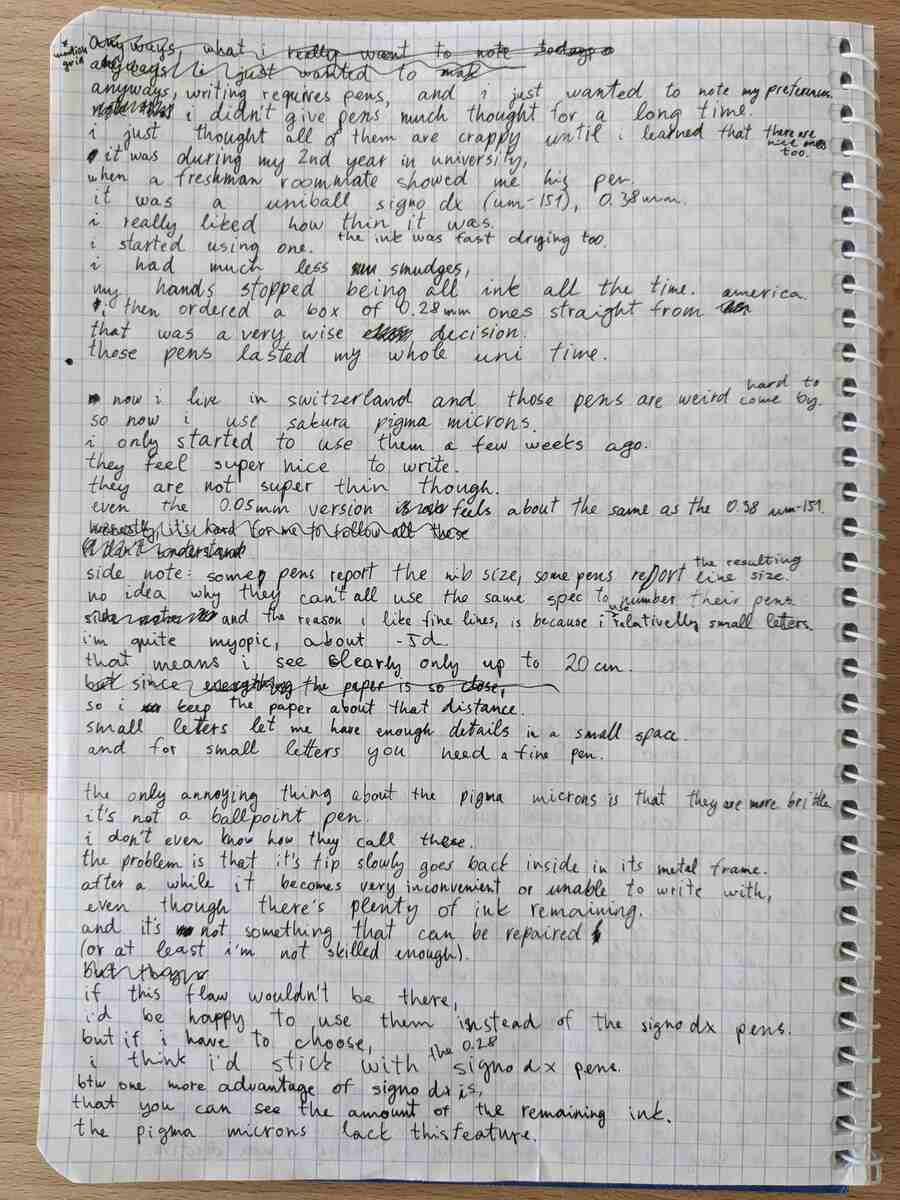 * mention grid
anyways, what i really want to note today,
anyways i just wanted to mak
anyways, writing requires pens, and i just wanted to note my preferences.
i didn't give pens much thought for a long time.
i just thought all of them are crappy until i learned that there are nice ones too.
it was during my 2nd year in university,
when a freshman roommate showed me his pen.
it was a uniball signo dx (um-151), 0.38mm.
i really liked how thin it was.
i started using one. the ink was fast drying too.
i had much less smudges,
my hands stopped being all ink all the time.
i then ordered a box of 0.28mm ones straight from america.
that was a very wise decision.
those pens lasted my whole uni time.
now i live in switzerland and those pens are weird hard to come by.
so now i use sakura pigma microns.
i only started to use them a few weeks ago.
they feel super nice to write.
they are not super thin though.
even the 0.05mm version feels about the same as the 0.38 um-151.
honestly, it's hard for me to follow all these
i don't understand
side note: some pens report the nib size, some pens report the resulting line size.
no idea why they can't all use the same spec to number their pens.
and the reason i like fine lines, is because i use relatively small letters.
i'm quite myopic, about -5d.
that means i see clearly only up to 20 cm.
but since everything the paper is so close,
so i keep the paper about that distance.
small letters let me have enough details in a small space.
and for small letters you need a fine pen.
the only annoying thing about the pigma microns is that they are more brittle.
it's not a ballpoint pen.
i don't even know how they call these.
the problem is that it's tip slowly goes back inside in its metal frame.
after a while it becomes very inconvenient or unable to write with,
even though there's plenty of ink remaining.
and it's not something that can be repaired
(or at least i'm not skilled enough).
if this flaw wouldn't be there,
i'd be happy to use them instead of the signo dx pens.
but if i have to choose,
i think i'd stick with the 0.28 signo dx pens.
btw one more advantage of signo dx is,
that you can see the amount of the remaining ink.
the pigma microns lack this feature.